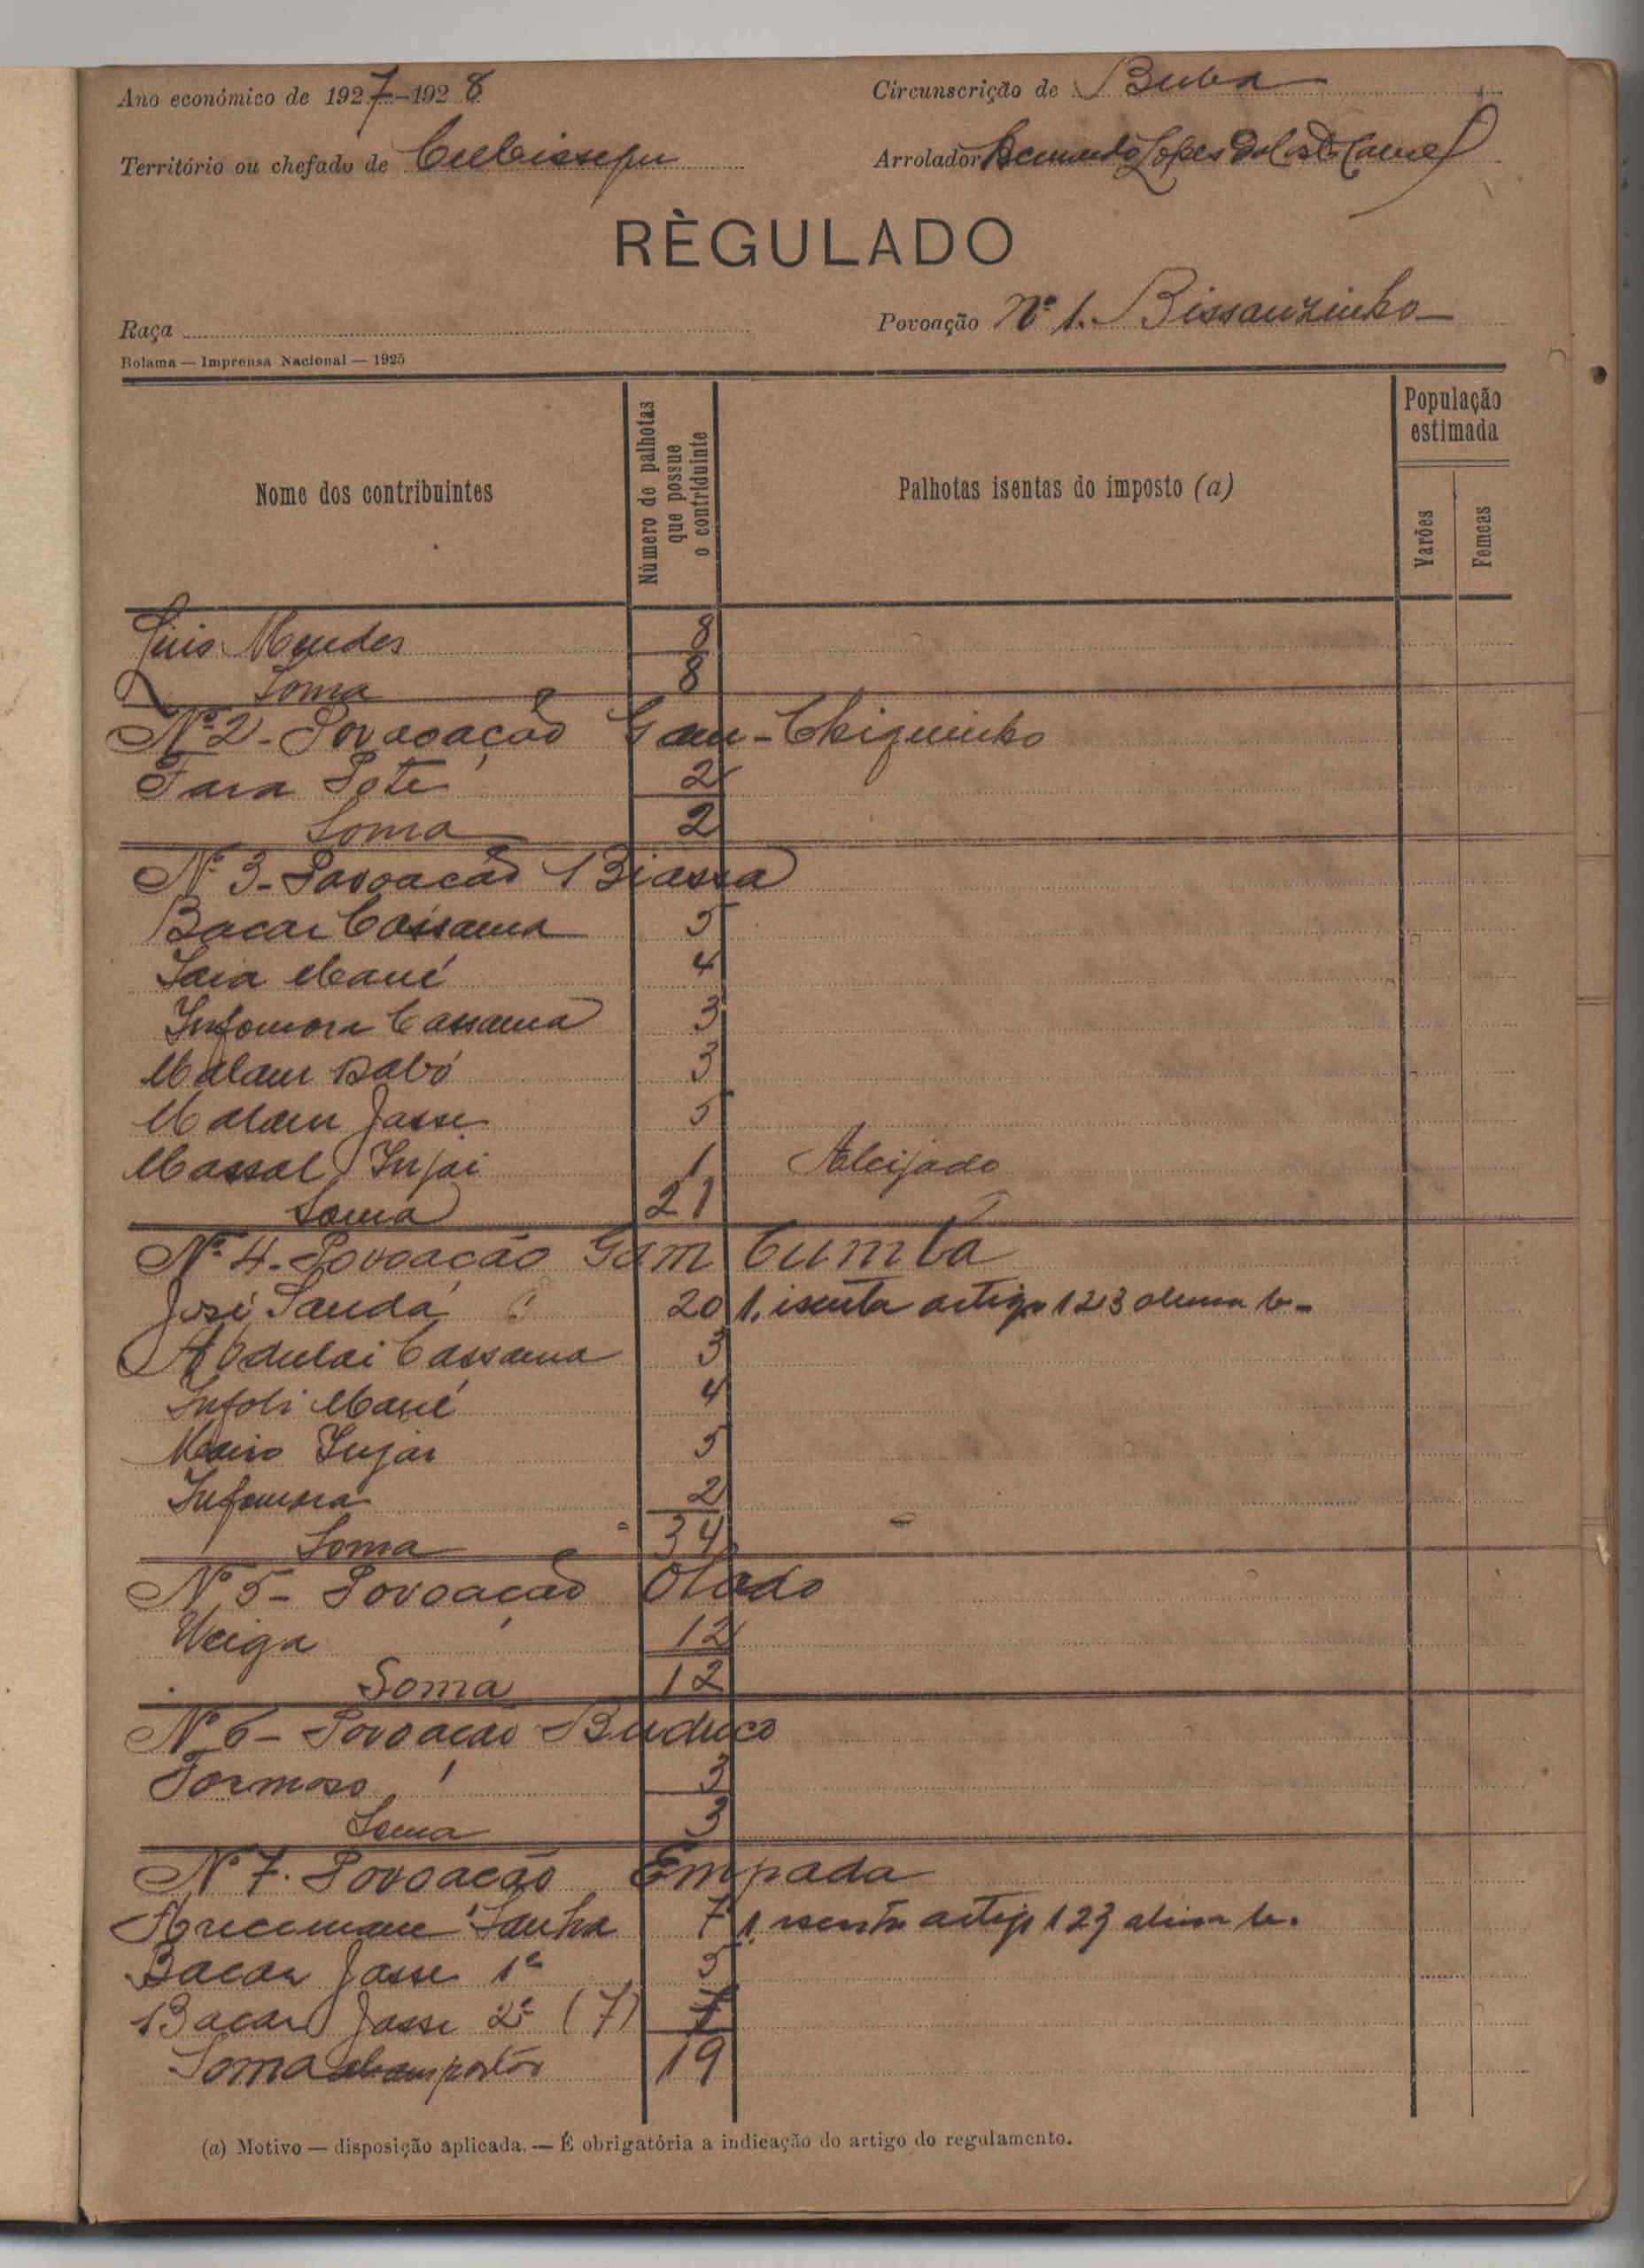 Ano económico de 1927-1928
Circunscrição de Buba
Território ou chefado de Cubissegu
Arrolador Bernardo Lopes da Costa
RÈGULADO
Raça
Povoação Nº 1. Bissauzinho
Bolama — Imprensa Nacional — 1925
Nome dos contribuintes
Número de palhotas que possue o contriduinte
Palhotas isentas do imposto (a)
População estimada
Varões
Femeas
Luis Mendes 8
Soma 8
Nº 2 - Povoação Gam-Chiquinho
Fara Sote 2
Soma 2
Nº 3 - Povoacão Biassa
Bacar Cassama 5
Saia Mané 4
Infomora Cassama 3
Malam Dabó 3
Malam Jassi 5
Massal Injai 1 Aleijado
Soma 21
Nº 4. Povoacão Gam Cumba
José Sanda 20 1. isenta artigo 123 alinea b-
Abdulai Cassama 3
Infoli Mané 4
Injai 5
Infamara 2
Soma 34
Nº 5 - Povoação Olado
Veiga 12
Soma 12
Nº 6 - Povoacão Buduco
Formoso 3
Soma 3
Nº 7. Povoacão Empada
Sanha 7 1. isenta artigo 123 alinea b.
Bacar Jassi 1º 5
Bacar Jassi 2º (7) 7
Soma 19
(a) Motivo — disposição aplicada. — É obrigatória a indicação do artigo do regulamento.